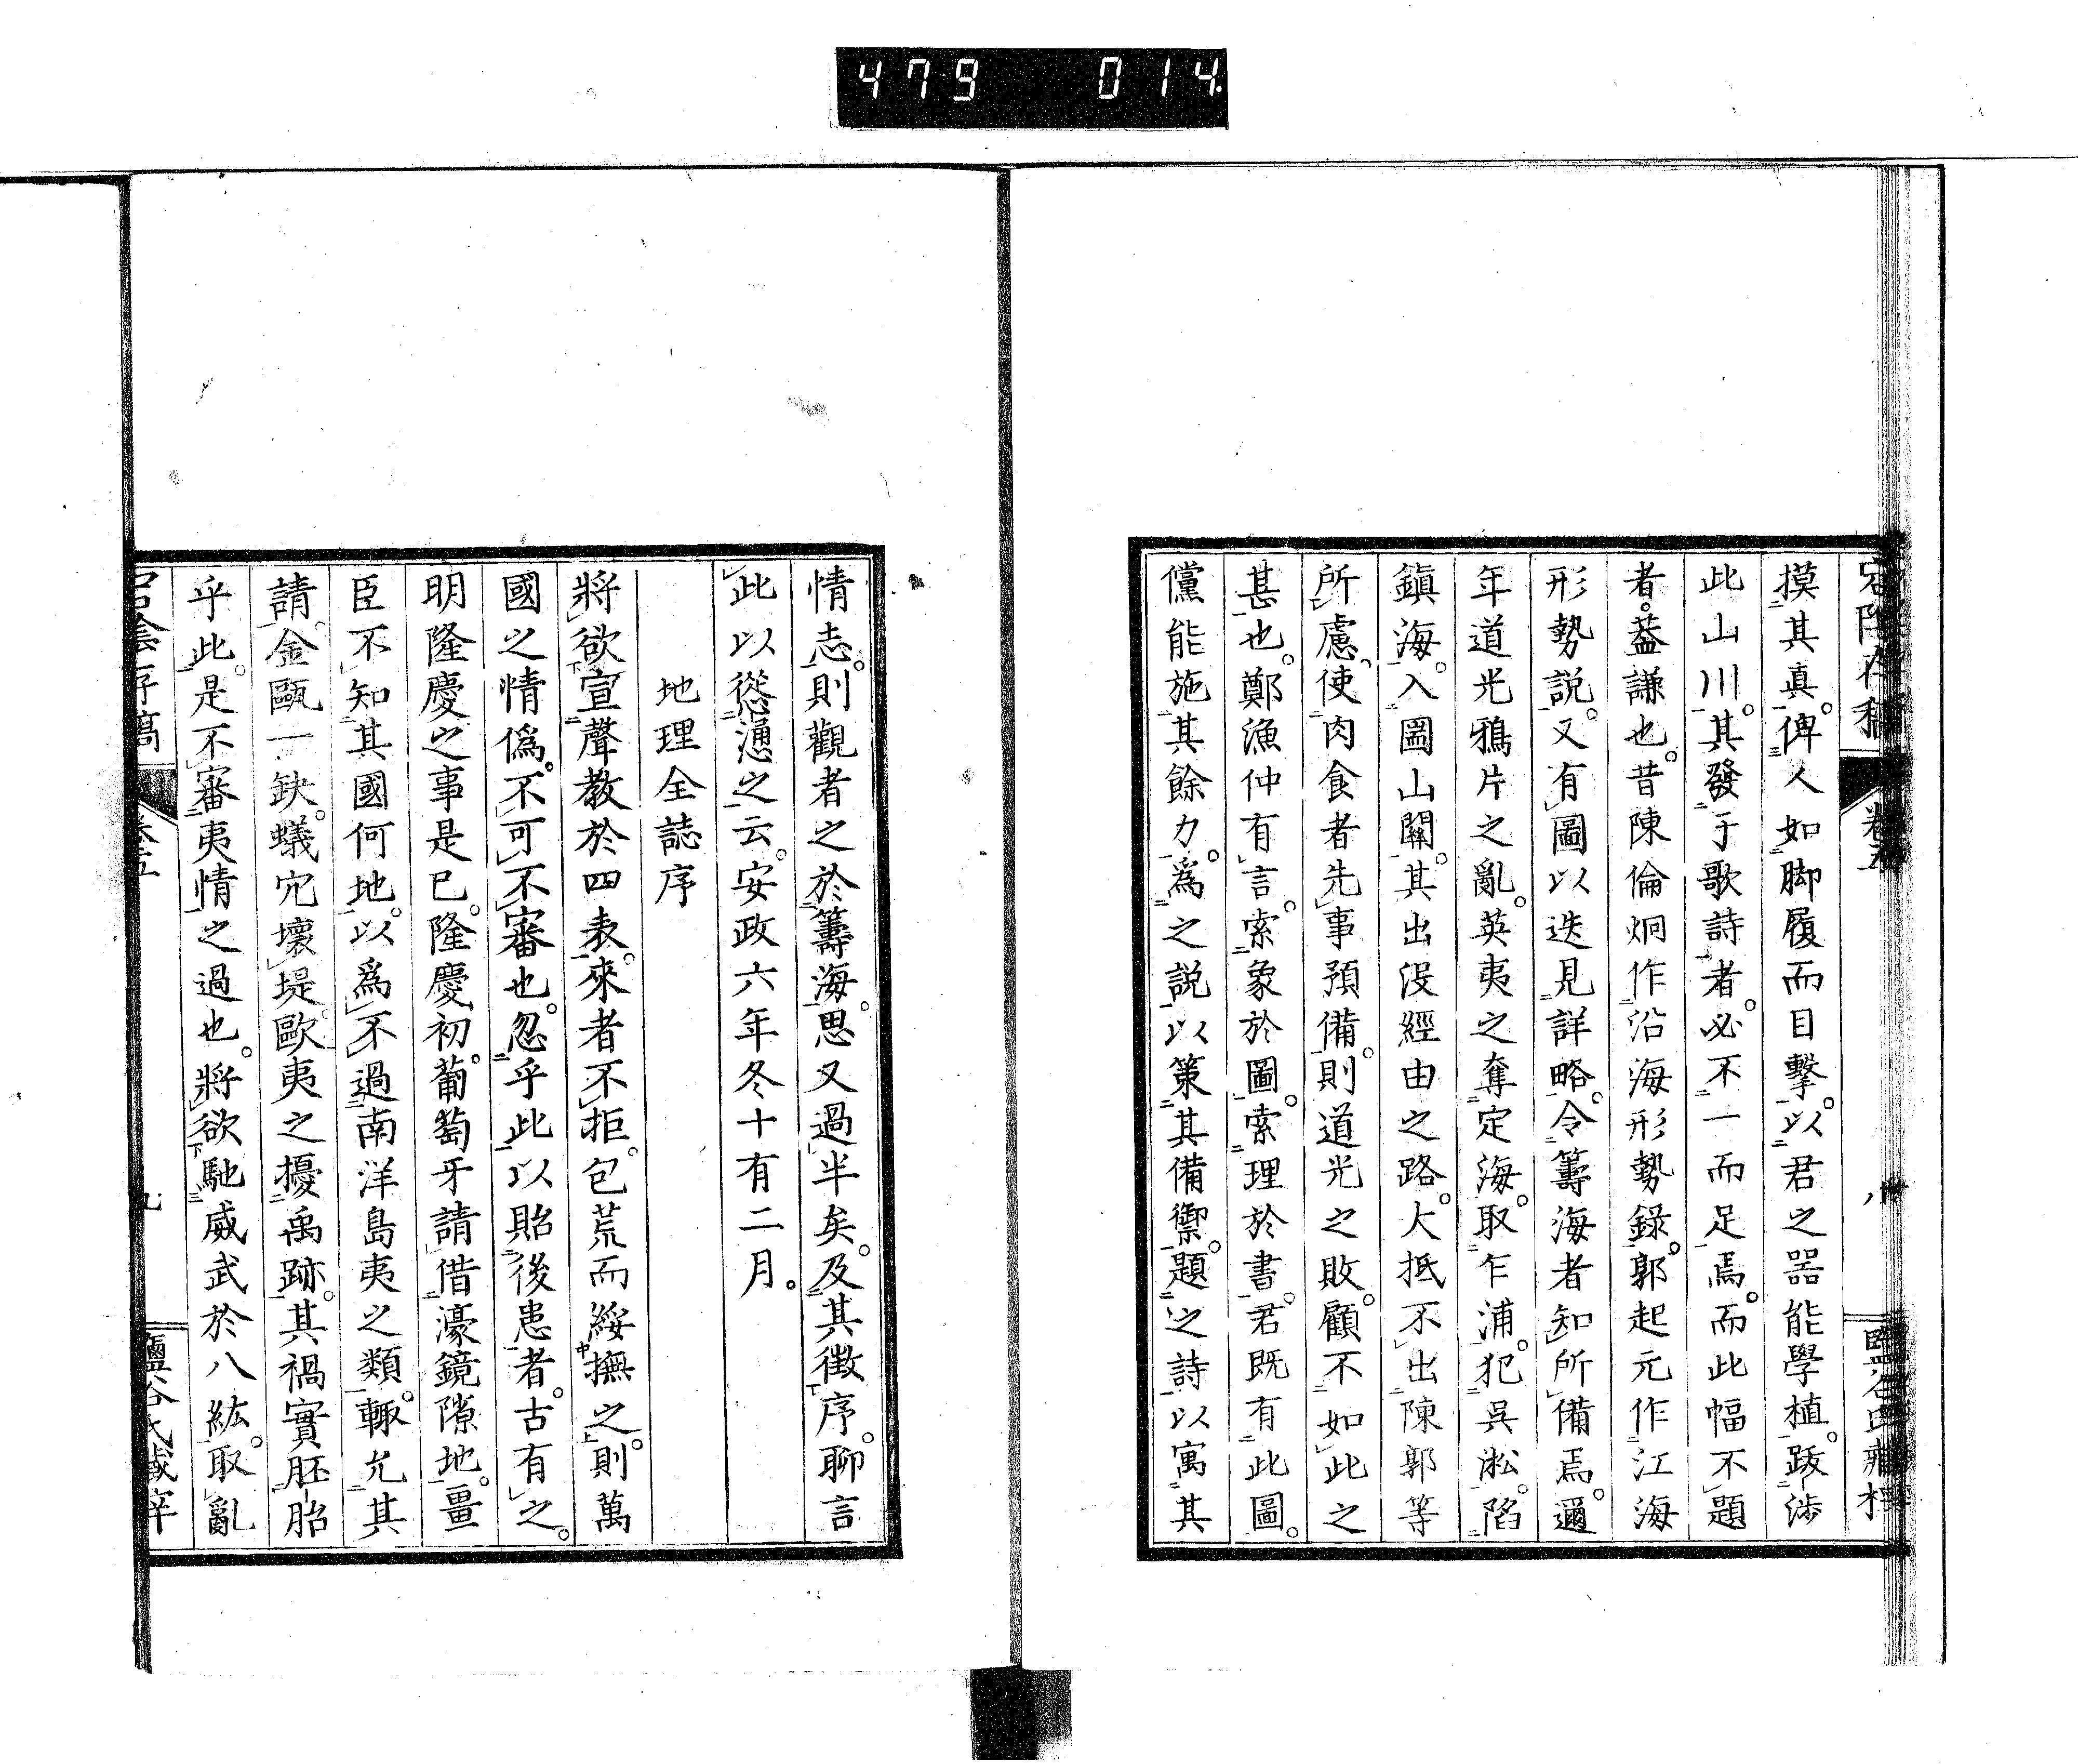 479 014
摸其真。俾人如脚履而目擊。以君之器能學植。跋涉
此山川。其發于歌詩者。必不一而足焉。而此幅不題
者。葢謙也。昔陳倫炯作沿海形勢錄。郭起元作江海
形勢說。又有圖以迭見詳略。令籌海者知所備焉。邇
年道光鴉片之亂。英夷之奪定海。取乍浦。犯吳淞。陷
鎮海。入圌山關。其出沒經由之路。大抵不出陳郭等
所慮、使肉食者先事預備。則道光之敗。顧不如此之
甚也。鄭漁仲有言。索象於圖。索理於書。君既有此圖。
儻能施其餘力。爲之說以策其備禦。題之詩以寓其
卷五
八
情志。則觀者之於籌海。思又過半矣。及其徵序。聊言
此以慫慂之云。安政六年冬十有二月。
地理全誌序
將欲宣聲教於四表。來者不拒。包荒而綏撫之。則萬
國之情僞。不可不審也。忽乎此以貽後患者。古有之。
明隆慶之事是已。隆慶初。葡萄牙請借濠鏡隙地。畺
臣不知其國何地。以爲不過南洋島夷之類。輙允其
請。金甌一缺。蟻穴壞堤。歐夷之擾禹跡。其禍實胚胎
乎此。是不審夷情之過也。將欲馳威武於八紘。取亂